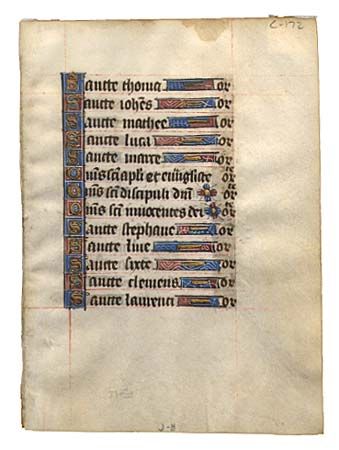 C-172
Sancte thoma or
Sancte iohēs or
Sancte mathee or
Sancte luca or
Sancte marce or
Om̄s sc̄i apl̄i et euāgliste orᵉ
Om̄s sc̄i discipuli dn̄i orᵉ
Om̄s sc̄i innocentes dei orᵉ
Sancte stephane or
Sancte line or
Sancte sixte or
Sancte clemens or
Sancte laurenti or